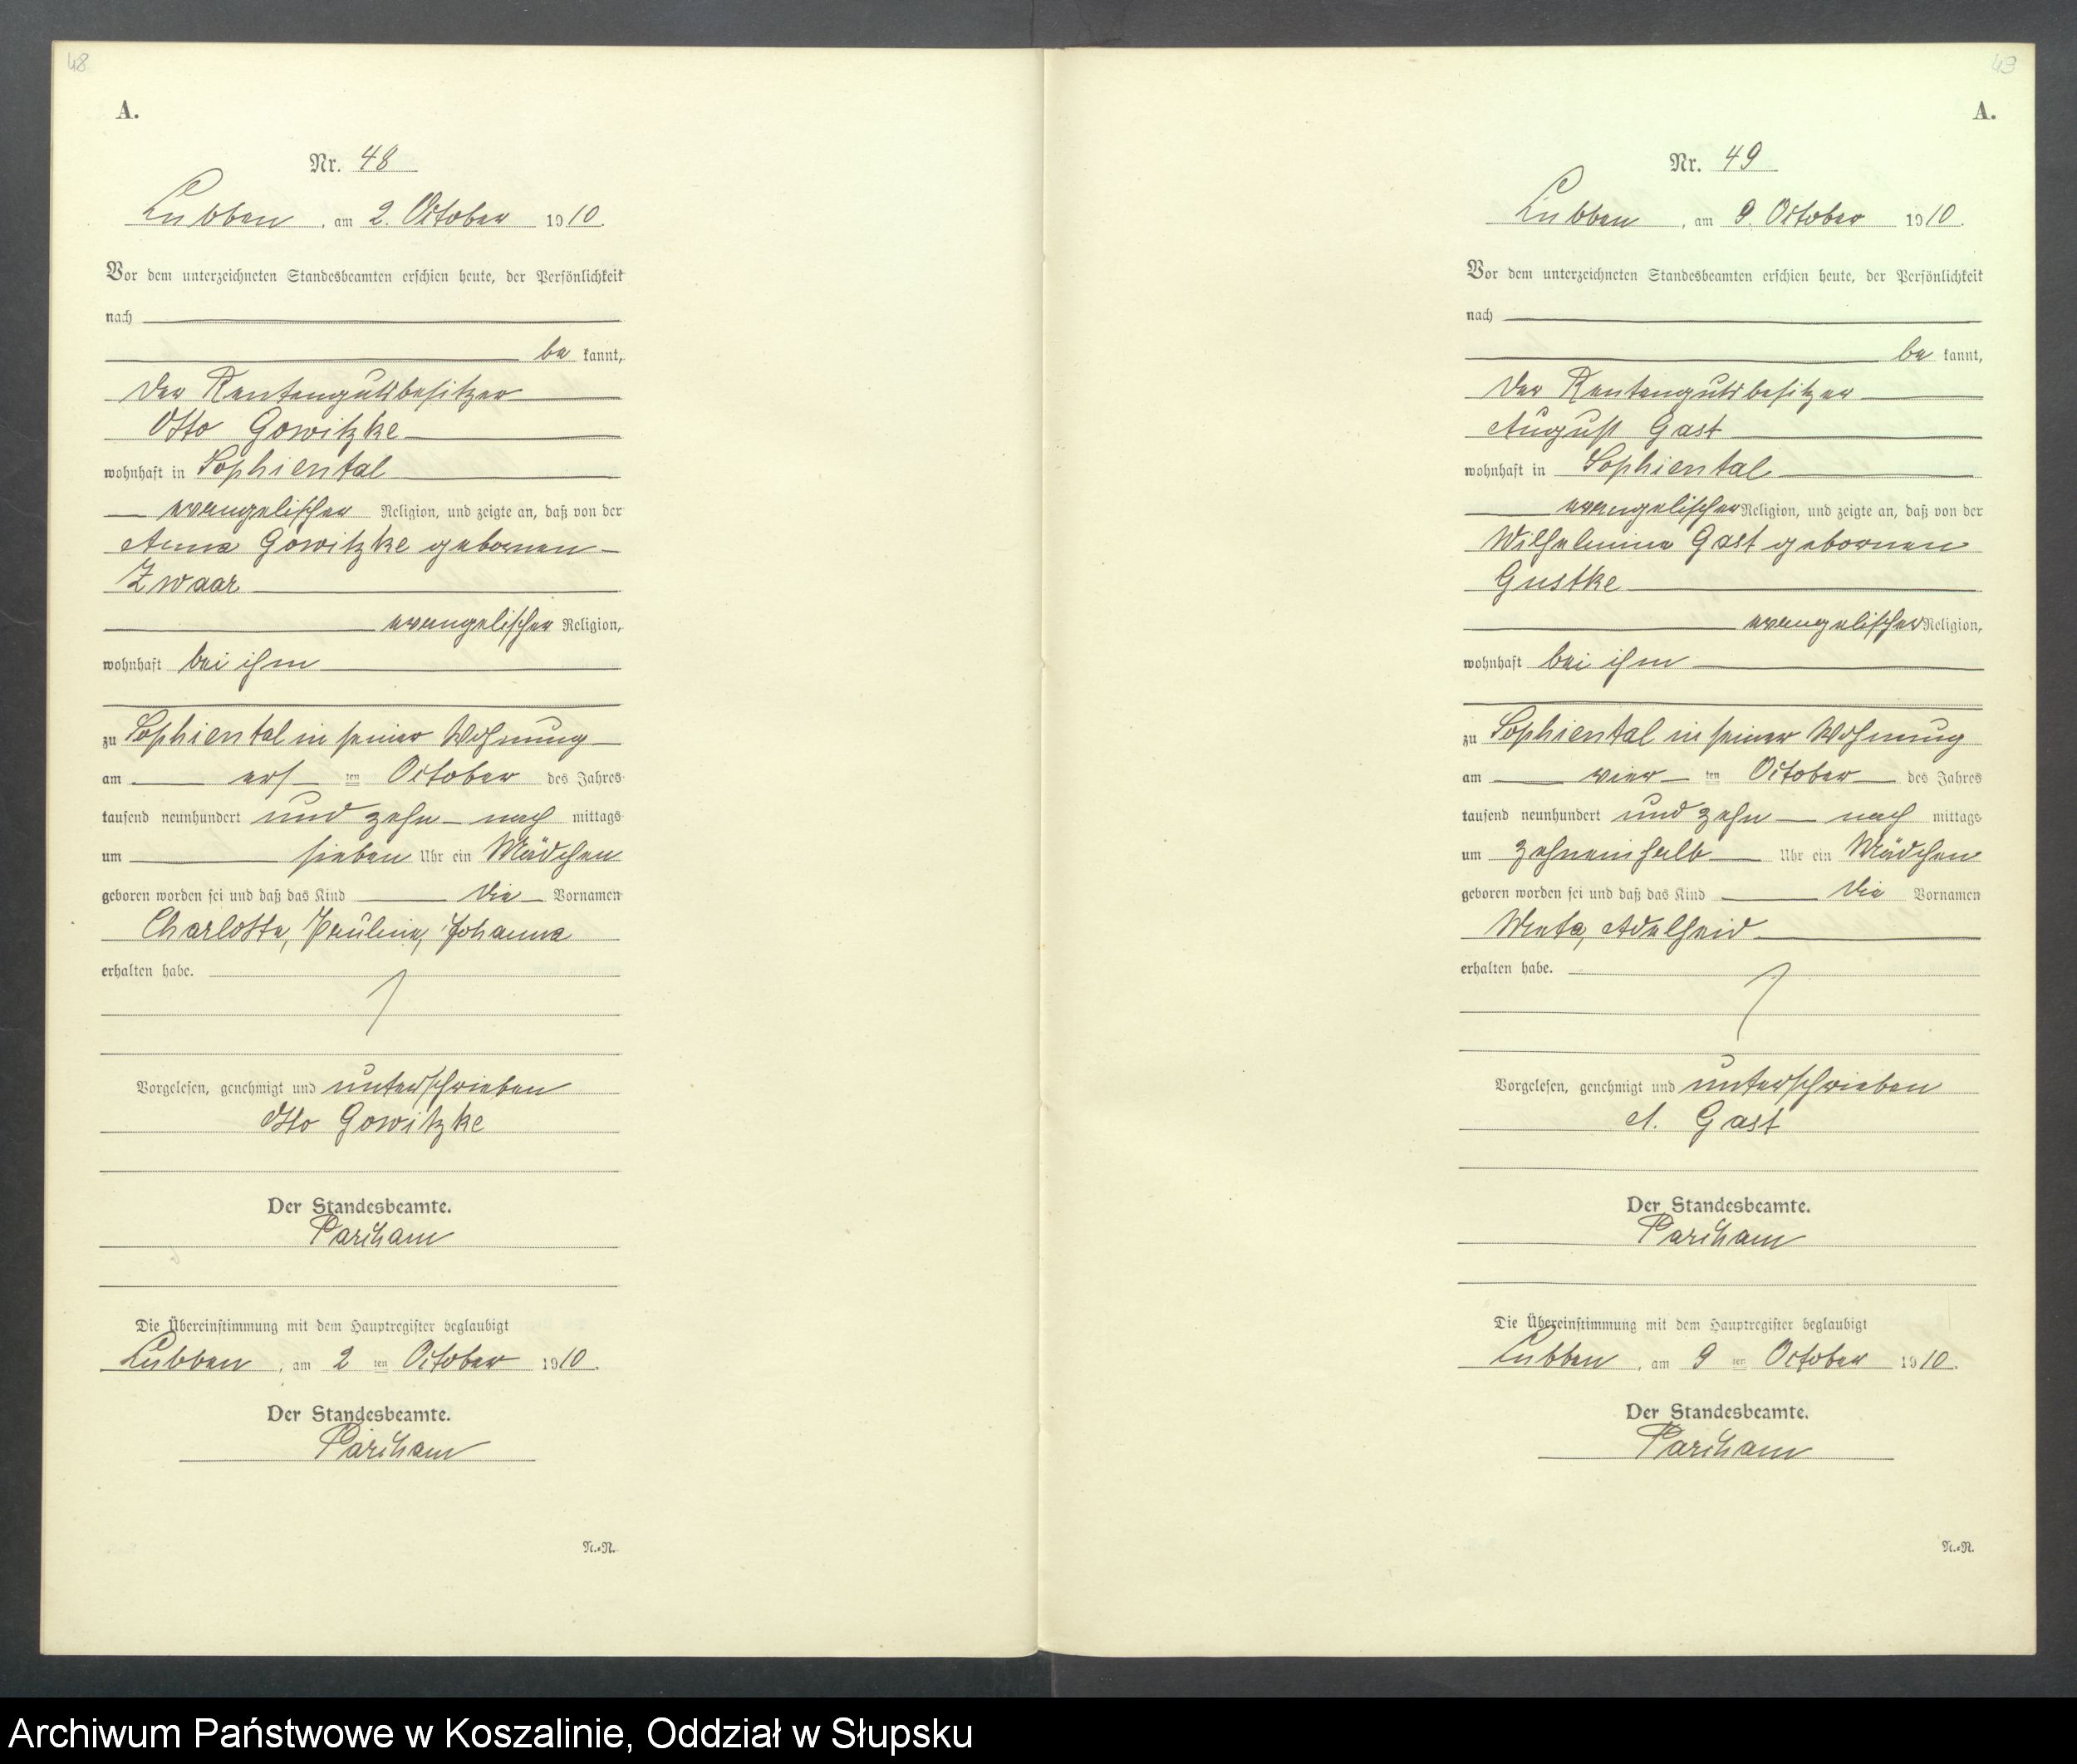 48
A.
Nr. 48
Lubben, am 2. October 1910.
Vor dem unterzeichneten Standesbeamten erschien heute, der Persönlichkeit
nach
be kannt,
der Rentengutsbesitzer
Otto Gowitzke
wohnhaft in Sophiental
evangelischer Religion, und zeigte an, daß von der
Anna Gowitzke gebornen
Zwaar
evangelischer Religion,
wohnhaft bei ihm
zu Sophiental in seiner Wohnung
am ers ten October des Jahres
tausend neunhundert und zehn nach mittags
um sieben Uhr ein Mädchen
geboren worden sei und daß das Kind die Vornamen
Charlotte, Pauline, Johanna
erhalten habe.
Vorgelesen, genehmigt und unterschrieben
Otto Gowitzke
Der Standesbeamte.
Die Übereinstimmung mit dem Hauptregister beglaubigt
Lubben, am 2 ten October 1910.
Der Standesbeamte.
N.-R.
49
A.
Nr. 49
Lubben, am 9. October 1910.
Vor dem unterzeichneten Standesbeamten erschien heute, der Persönlichkeit
nach
be kannt,
der Rentengutsbesitzer
August Gast
wohnhaft in Sophiental
evangelischer Religion, und zeigte an, daß von der
Wilhelmine Gast gebornen
Gustke
evangelischer Religion,
wohnhaft bei ihm
zu Sophiental in seiner Wohnung
am vier ten October des Jahres
tausend neunhundert und zehn nach mittags
um zehneinhalb Uhr ein Mädchen
geboren worden sei und daß das Kind die Vornamen
Meta, Adelheid
erhalten habe.
Vorgelesen, genehmigt und unterschrieben
A. Gast
Der Standesbeamte.
Die Übereinstimmung mit dem Hauptregister beglaubigt
Lubben, am 9 ten October 1910.
Der Standesbeamte.
N.-R.
Archiwum Państwowe w Koszalinie, Oddział w Słupsku